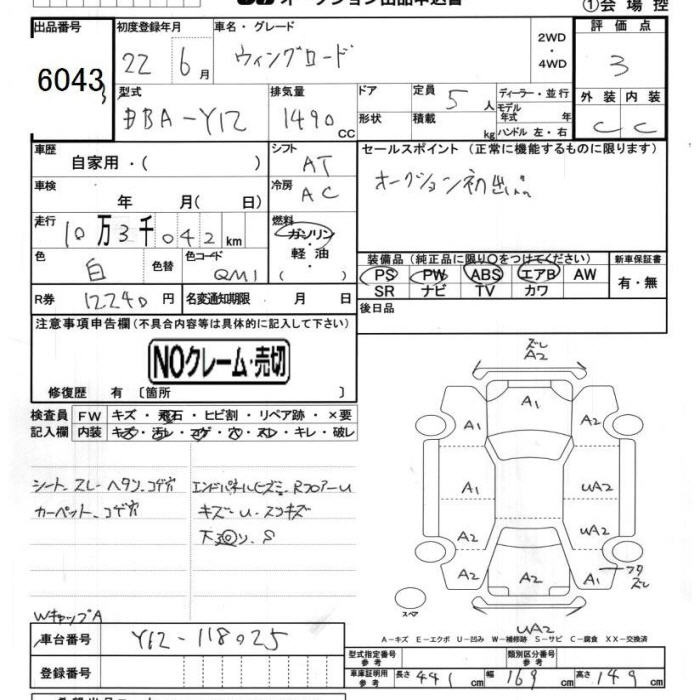 オークション出品申込書 ①会場控
出品番号 初度登録年月 車名・グレード 2WD・4WD 評価点
6043 22年6月 ウィングロード 3
型式 排気量 ドア 定員 ディーラー・並行 外装 内装
DBA-Y12 1490cc 5人 モデル年式 年 C C
形状 積載 kg ハンドル 左・右
車歴 シフト セールスポイント(正常に機能するものに限ります)
自家用・( ) AT オークション初出品
車検 冷房
年 月( 日) AC
走行 燃料
10万3千042km ガソリン・軽油・( )
色 色替 カラーコード 装備品(純正品に限り○をつけてください) 新車保証書
白 QM1 PS PW ABS エアB AW 有・無
SR ナビ TV カワ
R券 12240円 名変通知期限 月 日 後日品
注意事項申告欄(不具合内容等は具体的に記入して下さい)
NOクレーム・売切
修復歴 有〔箇所 〕
検査員 FW キズ・飛石・ヒビ割・リペア跡・×要
記入欄 内装 キズ・汚レ・コゲ・穴・スレ・キレ・破レ
シート スレ ヘタリ、コゲ穴 エンドパネルヒズミ、RフロアーU
カーペット、コゲ穴 キズU、スリキズ
下廻り、S
WキャップA
ズレ
A2
A1
A2 A2
A1 UA2
A2 UA2
A2 A2 A1 フタズレ
スペア
UA2
A-キズ E-エクボ U-凹み W-補修跡 S-サビ C-腐食 XX-交換済
車台番号 Y12-118025
登録番号
型式指定番号 参考 類別区分番号 参考
車庫証明用 参考 長さ 441cm 幅 169cm 高さ 149cm